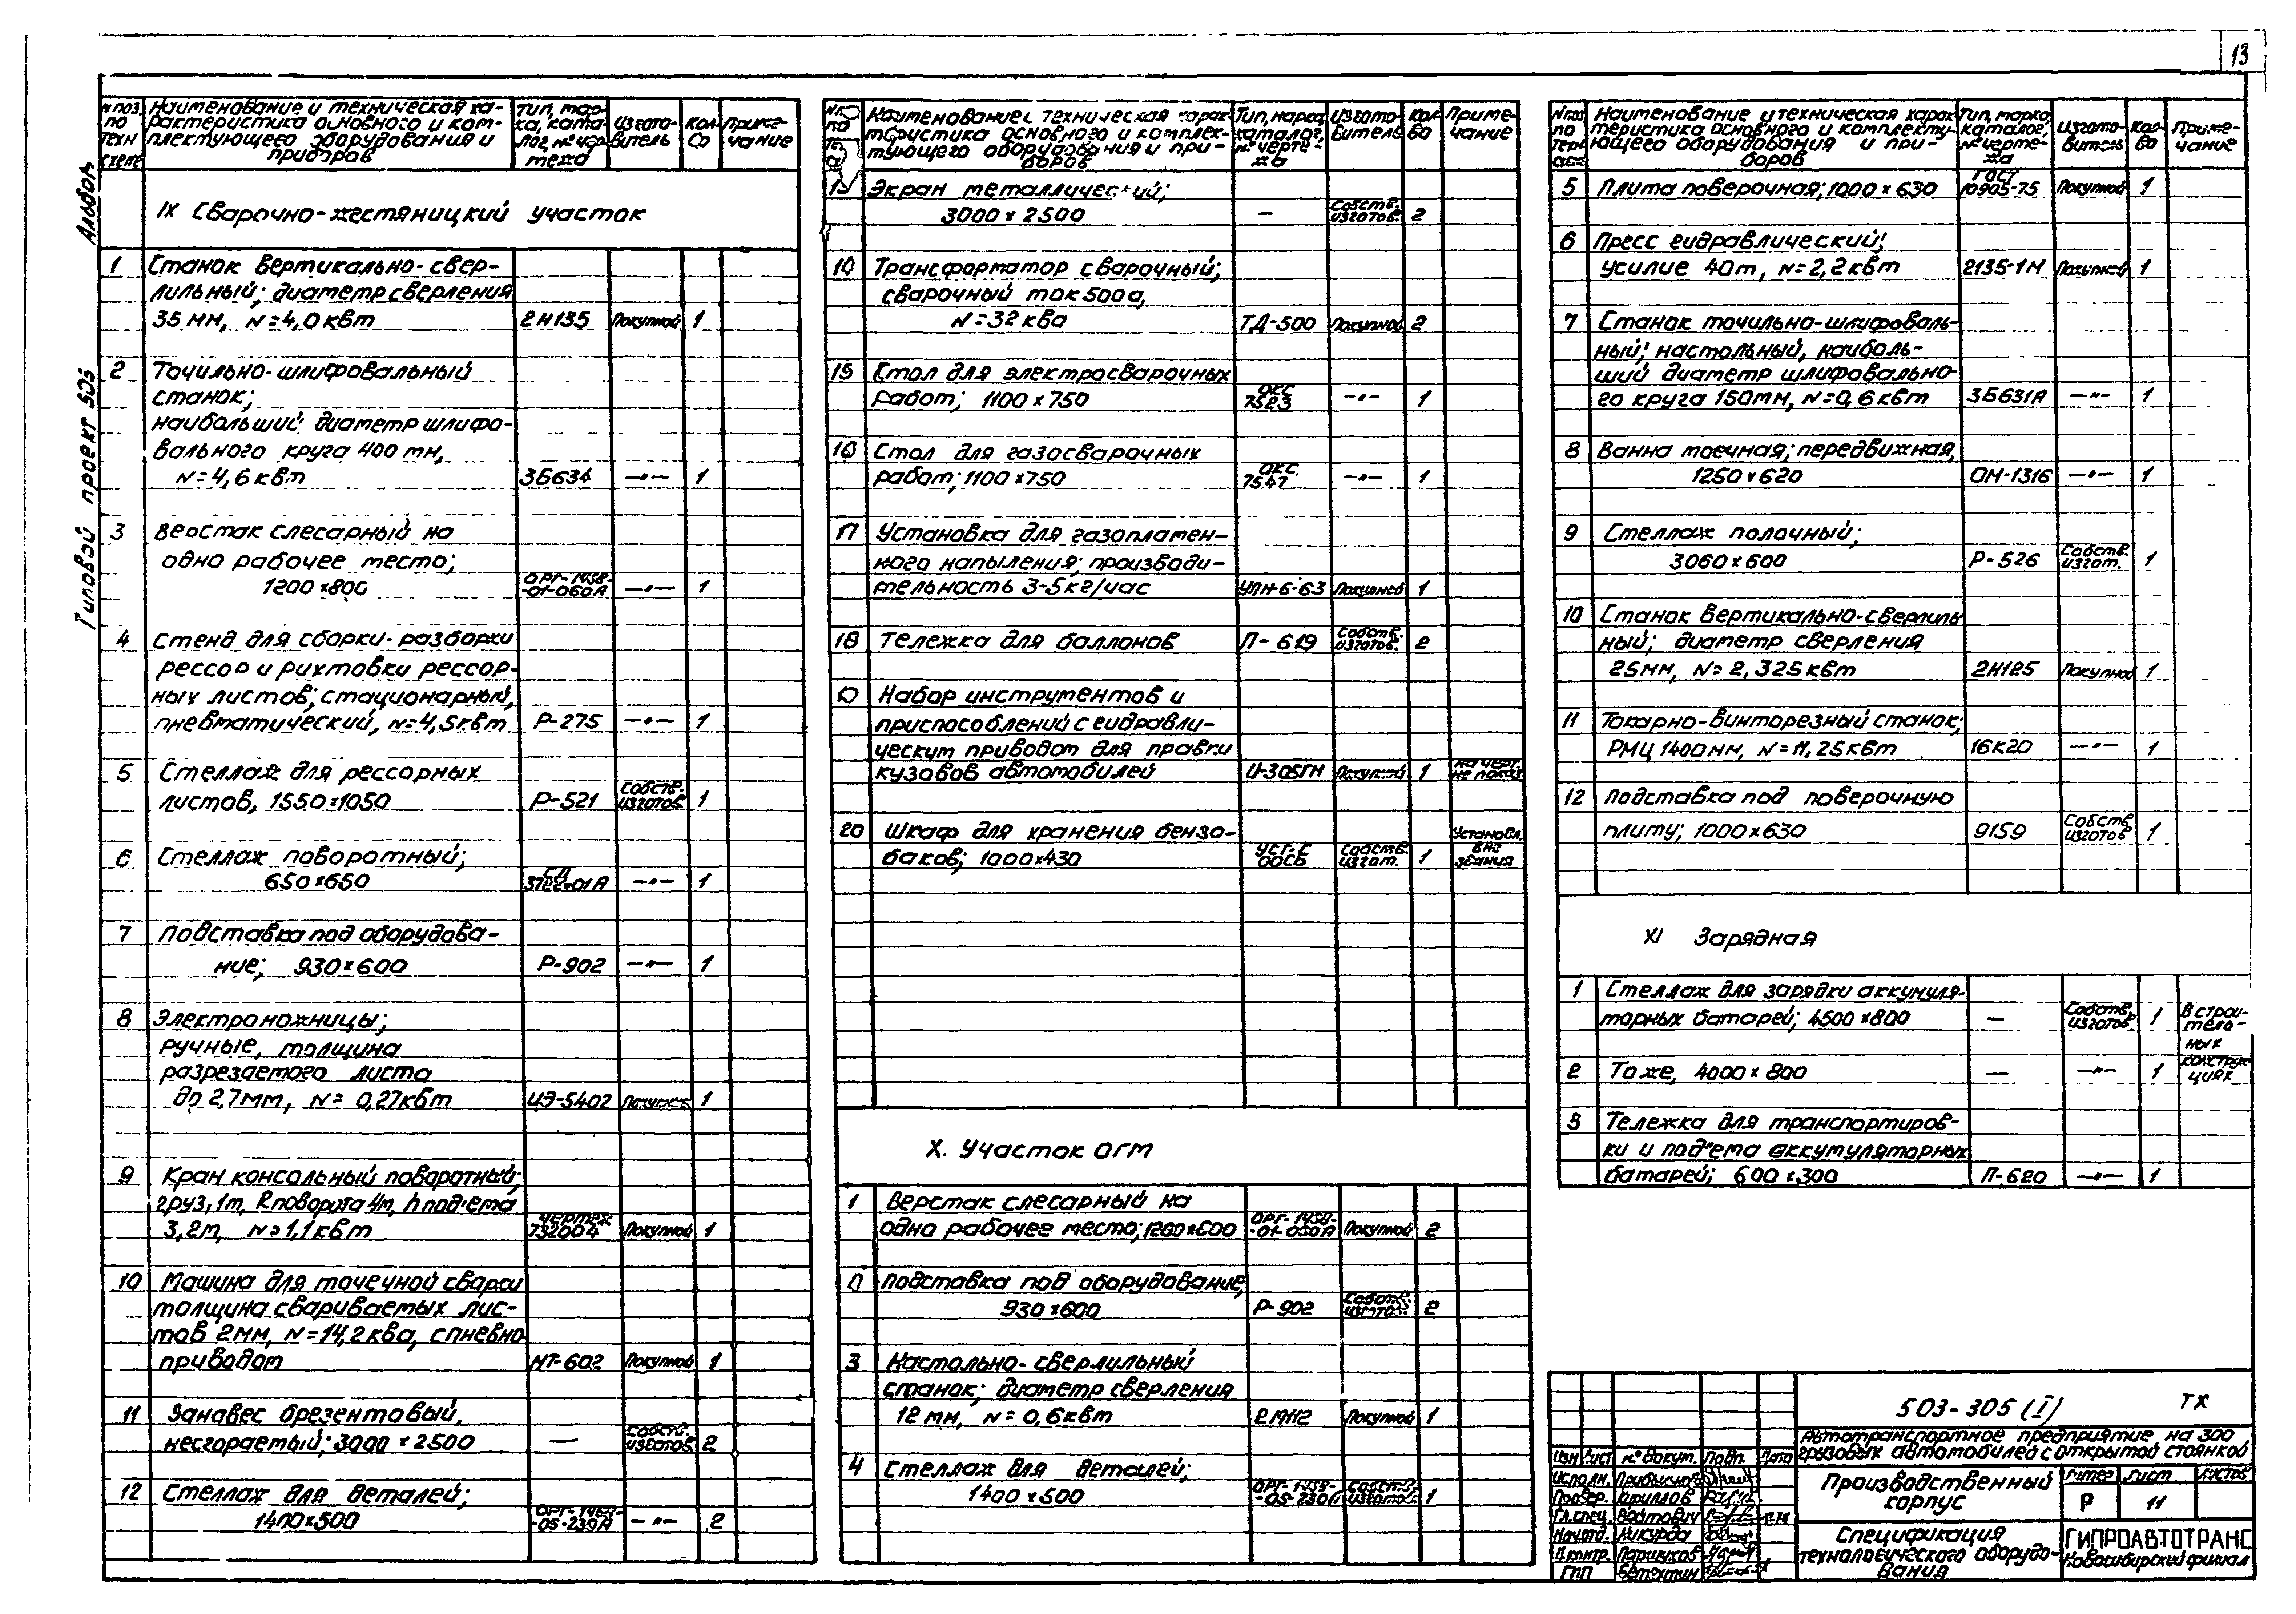 13
Альбом
Типовой проект 503
№ поз. по техн схеме
Наименование и техническая ха-
рактеристика основного и ком-
плектующего оборудования и
приборов
Тип, мар-
ка, ката-
лог, № чер-
тежа
Изгото-
витель
Кол-
во
Приме-
чание
IX Сварочно-жестяницкий участок
1 Станок вертикально-свер-
лильный; диаметр сверления
35 мм, N=4,0 квт 2Н135 Покупной 1
2 Точильно-шлифовальный
станок;
наибольший диаметр шлифо-
вального круга 400 мм,
N=4,6 квт 3Б634 —"— 1
3 Верстак слесарный на
одно рабочее место;
1200×800 ОРГ-1458-
-01-060А —"— 1
4 Стенд для сборки-разборки
рессор и рихтовки рессор-
ных листов; стационарный,
пневматический, N=4,5 квт Р-275 —"— 1
5 Стеллаж для рессорных
листов, 1550×1050 Р-521 Собств. изготов. 1
6 Стеллаж поворотный;
650×650 3722-01А —"— 1
7 Подставка под оборудова-
ние; 930×600 Р-902 —"— 1
8 Электроножницы;
ручные, толщина
разрезаемого листа
до 2,7мм, N= 0,27квт ИЭ-5402 Покупной 1
9 Кран консольный поворотный;
груз, 1т, R поворота 4м, h подъема
3,2м, N=1,1 квт чертеж 732004 Покупной 1
10 Машина для точечной сварки
толщина свариваемых лис-
тов 2мм, N=14,2 ква, с пневмо-
приводом МТ-602 Покупной 1
11 Занавес брезентовый,
несгораемый; 3000×2500 — Собств. изготов. 2
12 Стеллаж для деталей;
1400×500 -05-230А —"— 2
Наименование и техническая харак-
теристика основного и комплек-
тующего оборудования и при-
боров
Тип, марка,
каталог,
№ черте-
жа
Изгото-
витель
Кол-
во
Приме-
чание
Экран металлический;
3000×2500 — Собств. изготов. 2
Трансформатор сварочный;
сварочный ток 500а,
N=32 ква ТД-500 Покупной 2
15 Стол для электросварочных
работ; 1100×750 ОКС 7523 —"— 1
16 Стол для газосварочных
работ; 1100×750 ОКС. 7547 —"— 1
17 Установка для газопламен-
ного напыления; производи-
тельность 3-5кг/час УПН-6-63 Покупной 1
18 Тележка для баллонов П-619 Собств. изготов. 2
Набор инструментов и
приспособлений с гидравли-
ческим приводом для правки
кузовов автомобилей И-305ГМ Покупной 1 на черт. не показ
20 Шкаф для хранения бензо-
баков; 1000×430 Собств. изгот. 1 Установл. вне здания
X. Участок ОГМ
1 Верстак слесарный на
одно рабочее место; 1200×800 ОРГ-1458-
Покупной 2
Подставка под оборудование,
930×600 Р-902 Собств. изготов. 2
3 Настольно-сверлильный
станок; диаметр сверления
12 мм, N= 0,6квт 2М112 Покупной 1
4 Стеллаж для деталей;
1400×500 Собств. изготов. 1
№ поз. по техн. схеме
Наименование и техническая харак
теристика основного и комплекту-
ющего оборудования и при-
боров
Тип, марка,
каталог,
№ черте-
жа
Изгото-
витель
Кол-
во
Приме-
чание
5 Плита поверочная; 1000×630 ГОСТ 10905-75 Покупной 1
6 Пресс гидравлический;
усилие 40т, N=2,2квт 2135-1М Покупной 1
7 Станок точильно-шлифоваль-
ный; настольный, наиболь-
ший диаметр шлифовально-
го круга 150мм, N=0,6квт 3Б631А —"— 1
8 Ванна моечная; передвижная,
1250×620 ОМ-1316 —"— 1
9 Стеллаж полочный;
3060×600 Р-526 Собств. изгот. 1
10 Станок вертикально-сверлиль
ный; диаметр сверления
25мм, N=2,325квт 2Н125 Покупной 1
11 Токарно-винторезный станок;
РМЦ 1400мм, N=11,25квт 16К20 —"— 1
12 Подставка под поверочную
плиту; 1000×630 9159 Собств. изготов 1
XI Зарядная
1 Стеллаж для зарядки аккумуля-
торных батарей; 4500×800 — Собств. изготов. 1 В строи-
тель-
ных
конструк-
циях
2 То же, 4000×800 — —"— 1
3 Тележка для транспортиров-
ки и подъема аккумуляторных
батарей; 600×300 П-620 —"— 1
503-305 (I) ТХ
Автотранспортное предприятие на 300
грузовых автомобилей с открытой стоянкой
Изм Лист № докум. Подп. Дата
Исполн.
Провер. Кириллов
Гл.спец. Войтович
Нач.отд. Никурда
Н.контр. Паршуков
ГИП Бетехтин
Производственный
корпус
Литер Лист Листов
Р 11
Спецификация
технологического оборудо-
вания
ГИПРОАВТОТРАНС
Новосибирский филиал